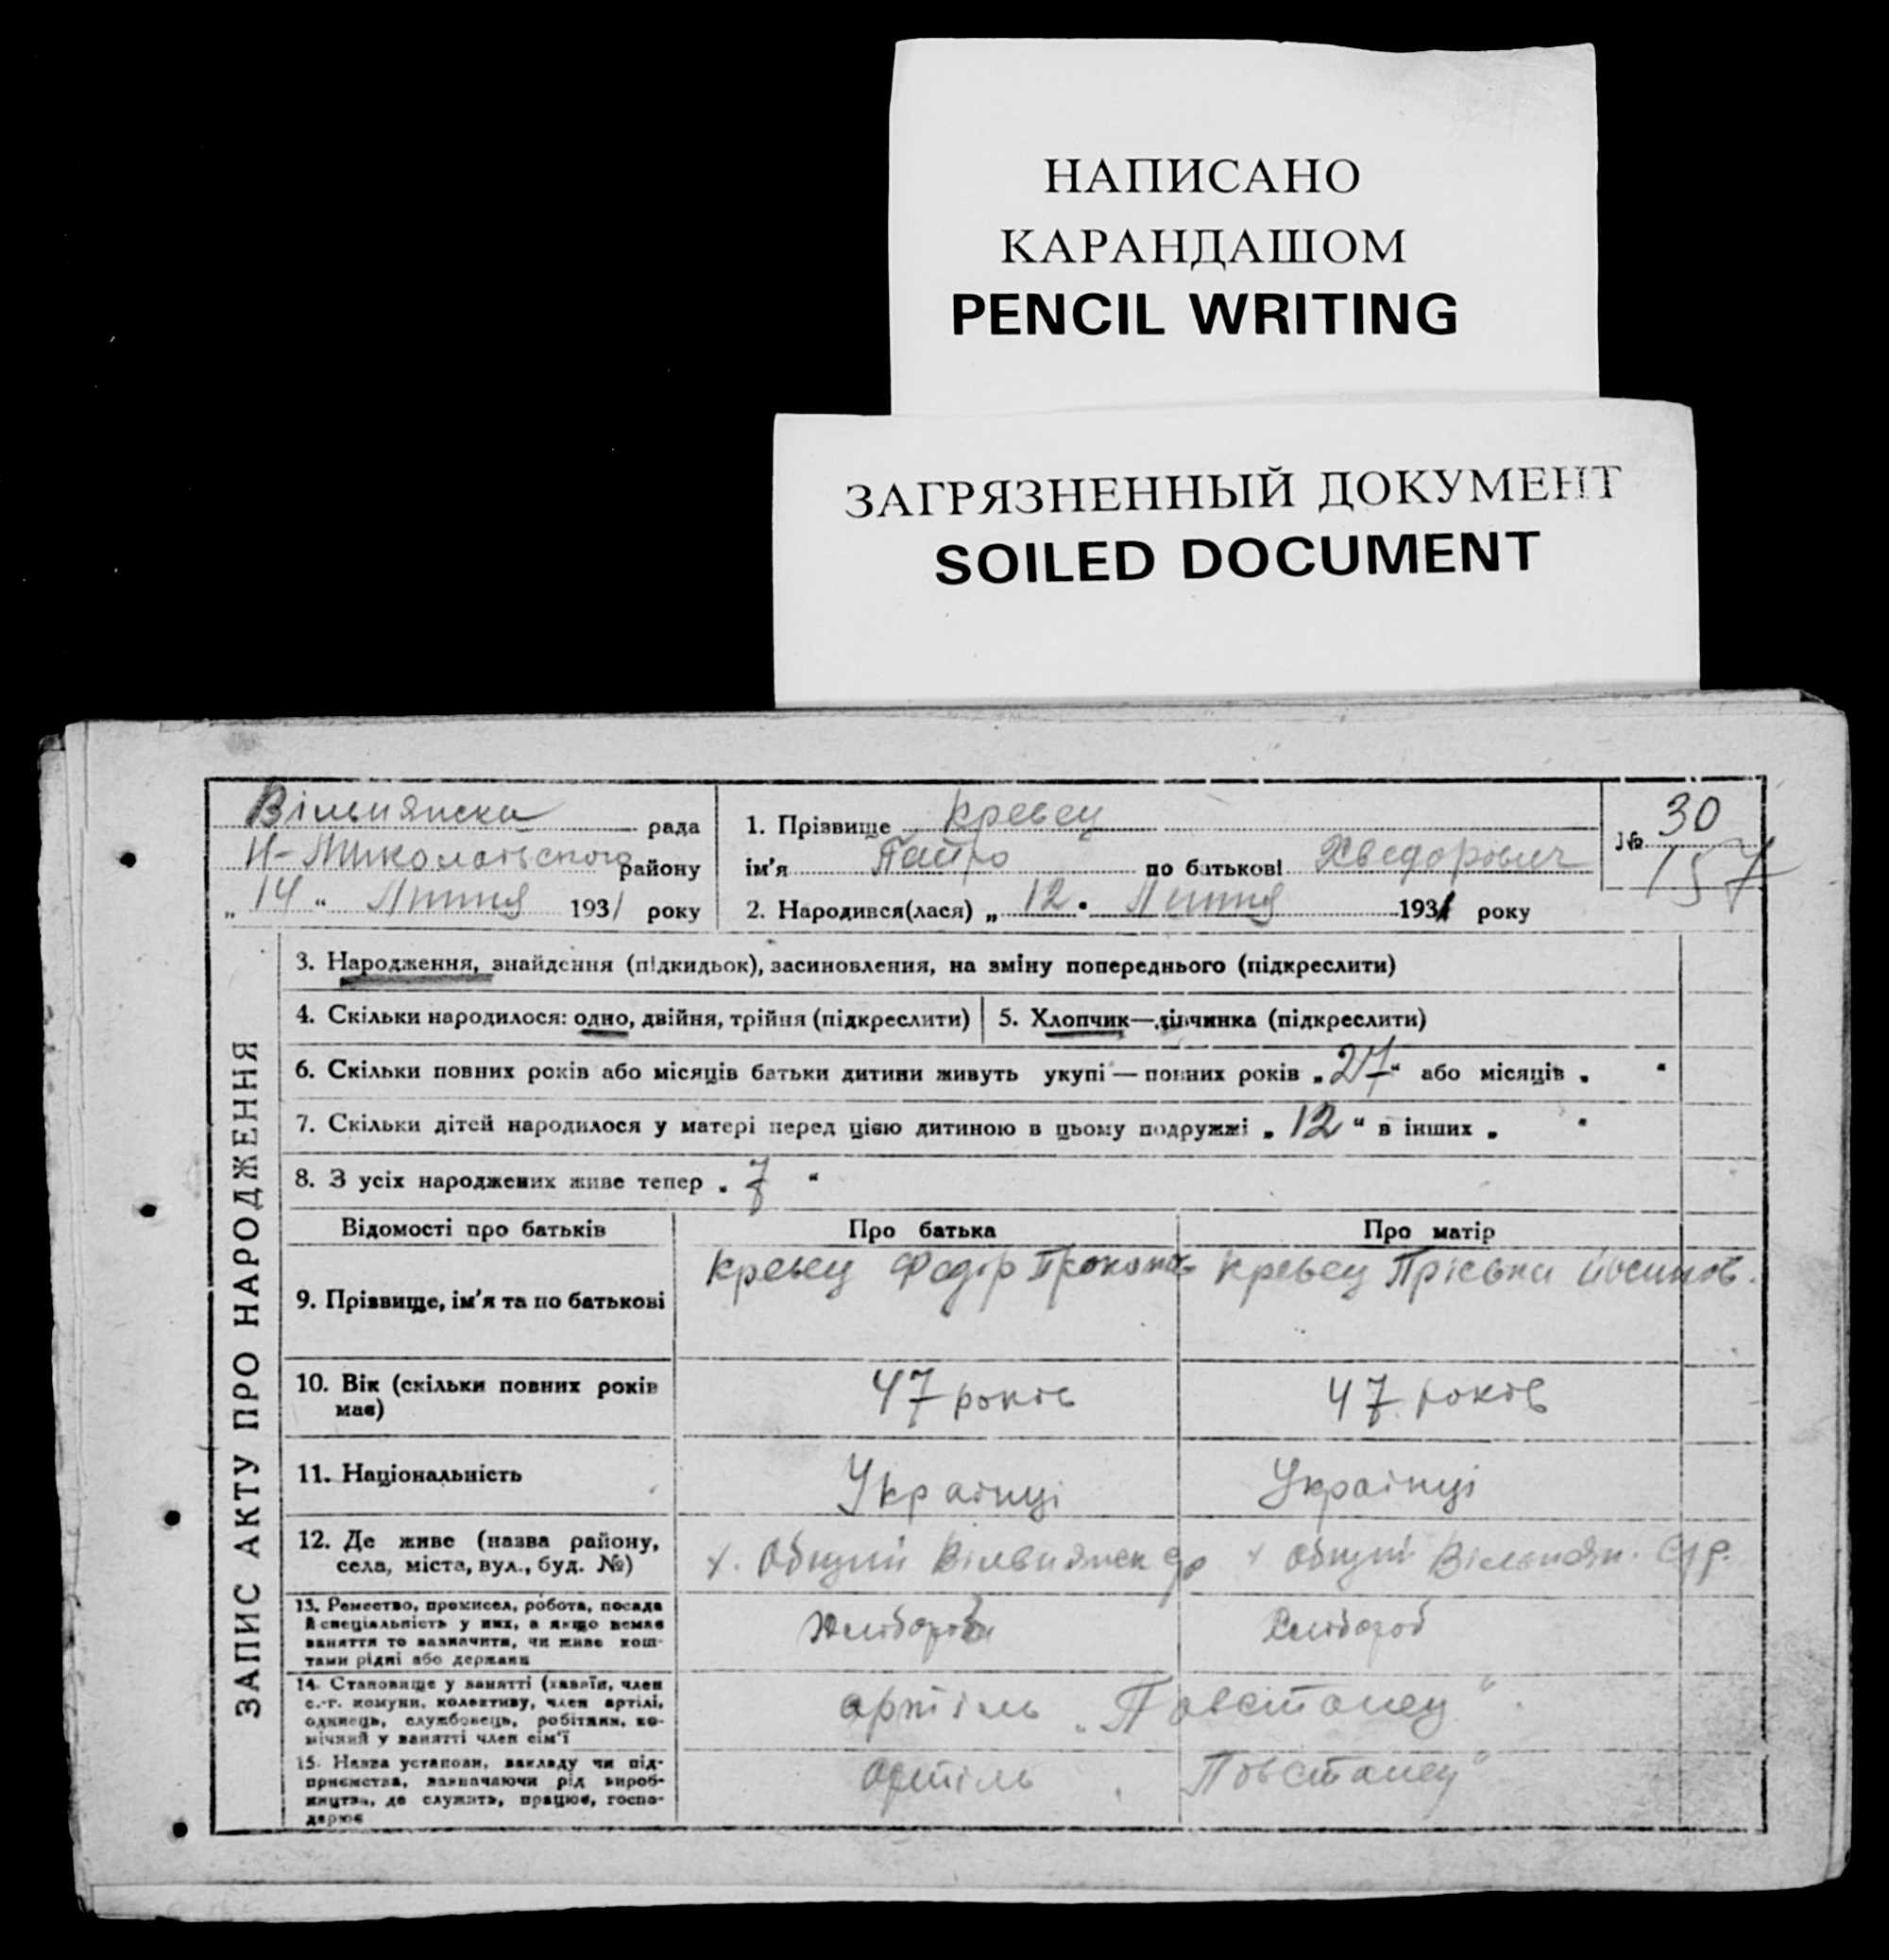 НАПИСАНО
КАРАНДАШОМ
PENCIL WRITING
ЗАГРЯЗНЕННЫЙ ДОКУМЕНТ
SOILED DOCUMENT
Вільнянска рада
Н-Миколаївського району
„ 14 “ Липня 1931 року
1. Прізвище Кревец
ім'я по батькові Хведорович
2. Народився(лася) „ 12 . Липня 1931 року
№ 30
157
ЗАПИС АКТУ ПРО НАРОДЖЕННЯ
3. Народження, знайдення (підкидьок), засиновлення, на зміну попереднього (підкреслити)
4. Скільки народилося: одно, двійня, трійня (підкреслити)
5. Хлопчик—дівчинка (підкреслити)
6. Скільки повних років або місяців батьки дитини живуть укупі — повних років „ 27 “ або місяців „ “
7. Скільки дітей народилося у матері перед цією дитиною в цьому подружжі „ 12 “ в інших „ “
8. З усіх народжених живе тепер „ 7 “
Відомості про батьків
Про батька
Про матір
9. Прізвище, ім'я та по батькові
Кревец Федір Прокопов
Кревец Прісьва Йосипов.
10. Вік (скільки повних років
має)
47 років
47 років
11. Національність
Українці
Українці
12. Де живе (назва району,
села, міста, вул., буд. №)
х. Общий Вільнянск с/р
х Общий Вільнян. с/р.
13. Ремество, промисел, робота, посада
й спеціальність у них, а якщо немає
заняття то зазначити, чи живе кош-
тами рідні або держави
Хлібороб
Хлібороб
14. Становище у занятті (хазяїн, член
с.-г. комуни, колективу, член артілі,
одинець, службовець, робітник, по-
мічний у занятті член сім'ї
артіль „Повстанец“
15. Назва установи, закладу чи під-
приємства, зазначаючи рід вироб-
ництва, де служить, працює, госпо-
дарює
артіль „Повстанец“